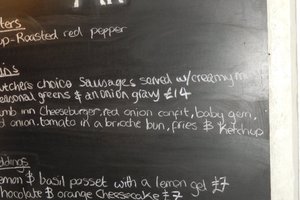 ters
up-Roasted red pepper
in's
utchers choice Sausages served w/creamy m
easonal greens & an onion gravy £14
amb inn Cheeseburger, red onion confit, baby gem,
d onion, tomato in a brioche bun, fries & ketchup
ddings
emon & basil posset with a lemon gel £7
hocolate & orange Cheesecake £7